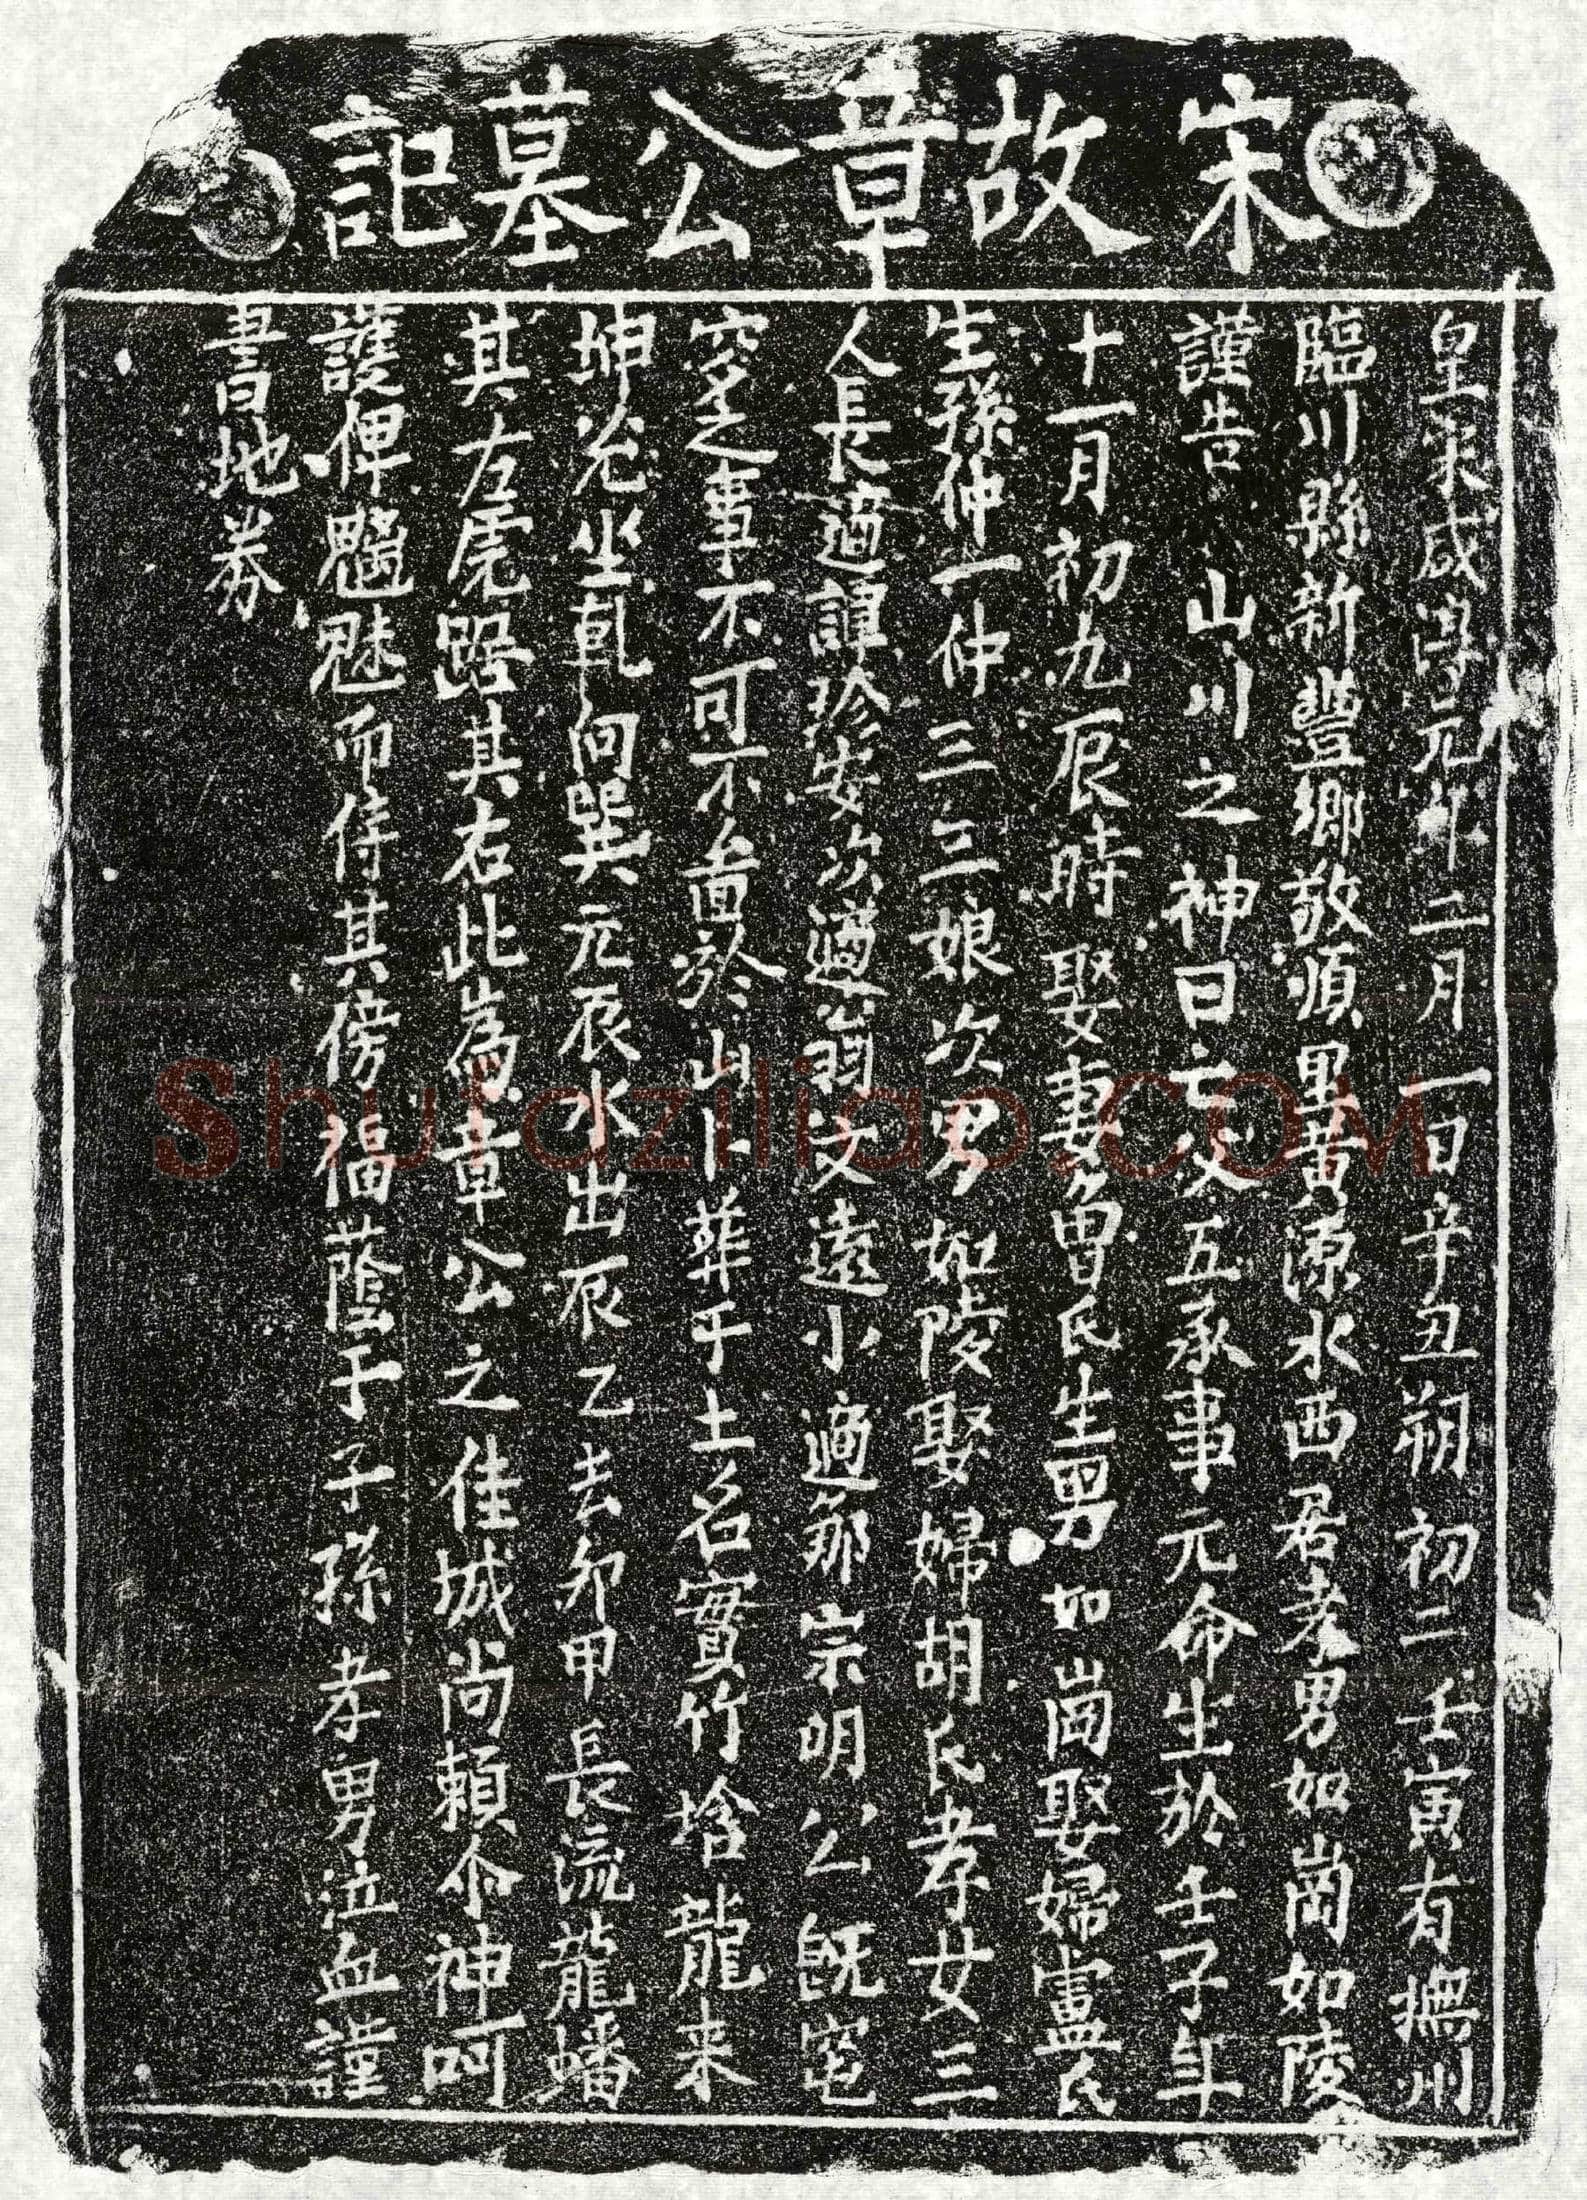 宋故章公墓記
皇宋咸淳元年二月一日辛丑朔初二壬寅有撫州
臨川縣新豐鄉敬順里黄源水西居孝男如崗如陵
謹告山川之神曰亡父五承事元命生於壬子年
十一月初九辰時娶妻曾氏生男如崗娶婦盧氏
生孫仲一仲三三娘次男如陵娶婦胡氏孝女三
人長適譚珍安次適翁文遠小適鄒宗明公既窀
穸之事不可不啚於山卜葬于土名實竹塘龍来
坤兑坐乹向巽元辰水出辰乙去夘甲長流龍蟠
其左虎踞其右此為章公之佳城尚賴尒神呵
護俾魑魅而侍其傍福蔭于子孫孝男泣血謹
書地券
Shufaziliao.COM